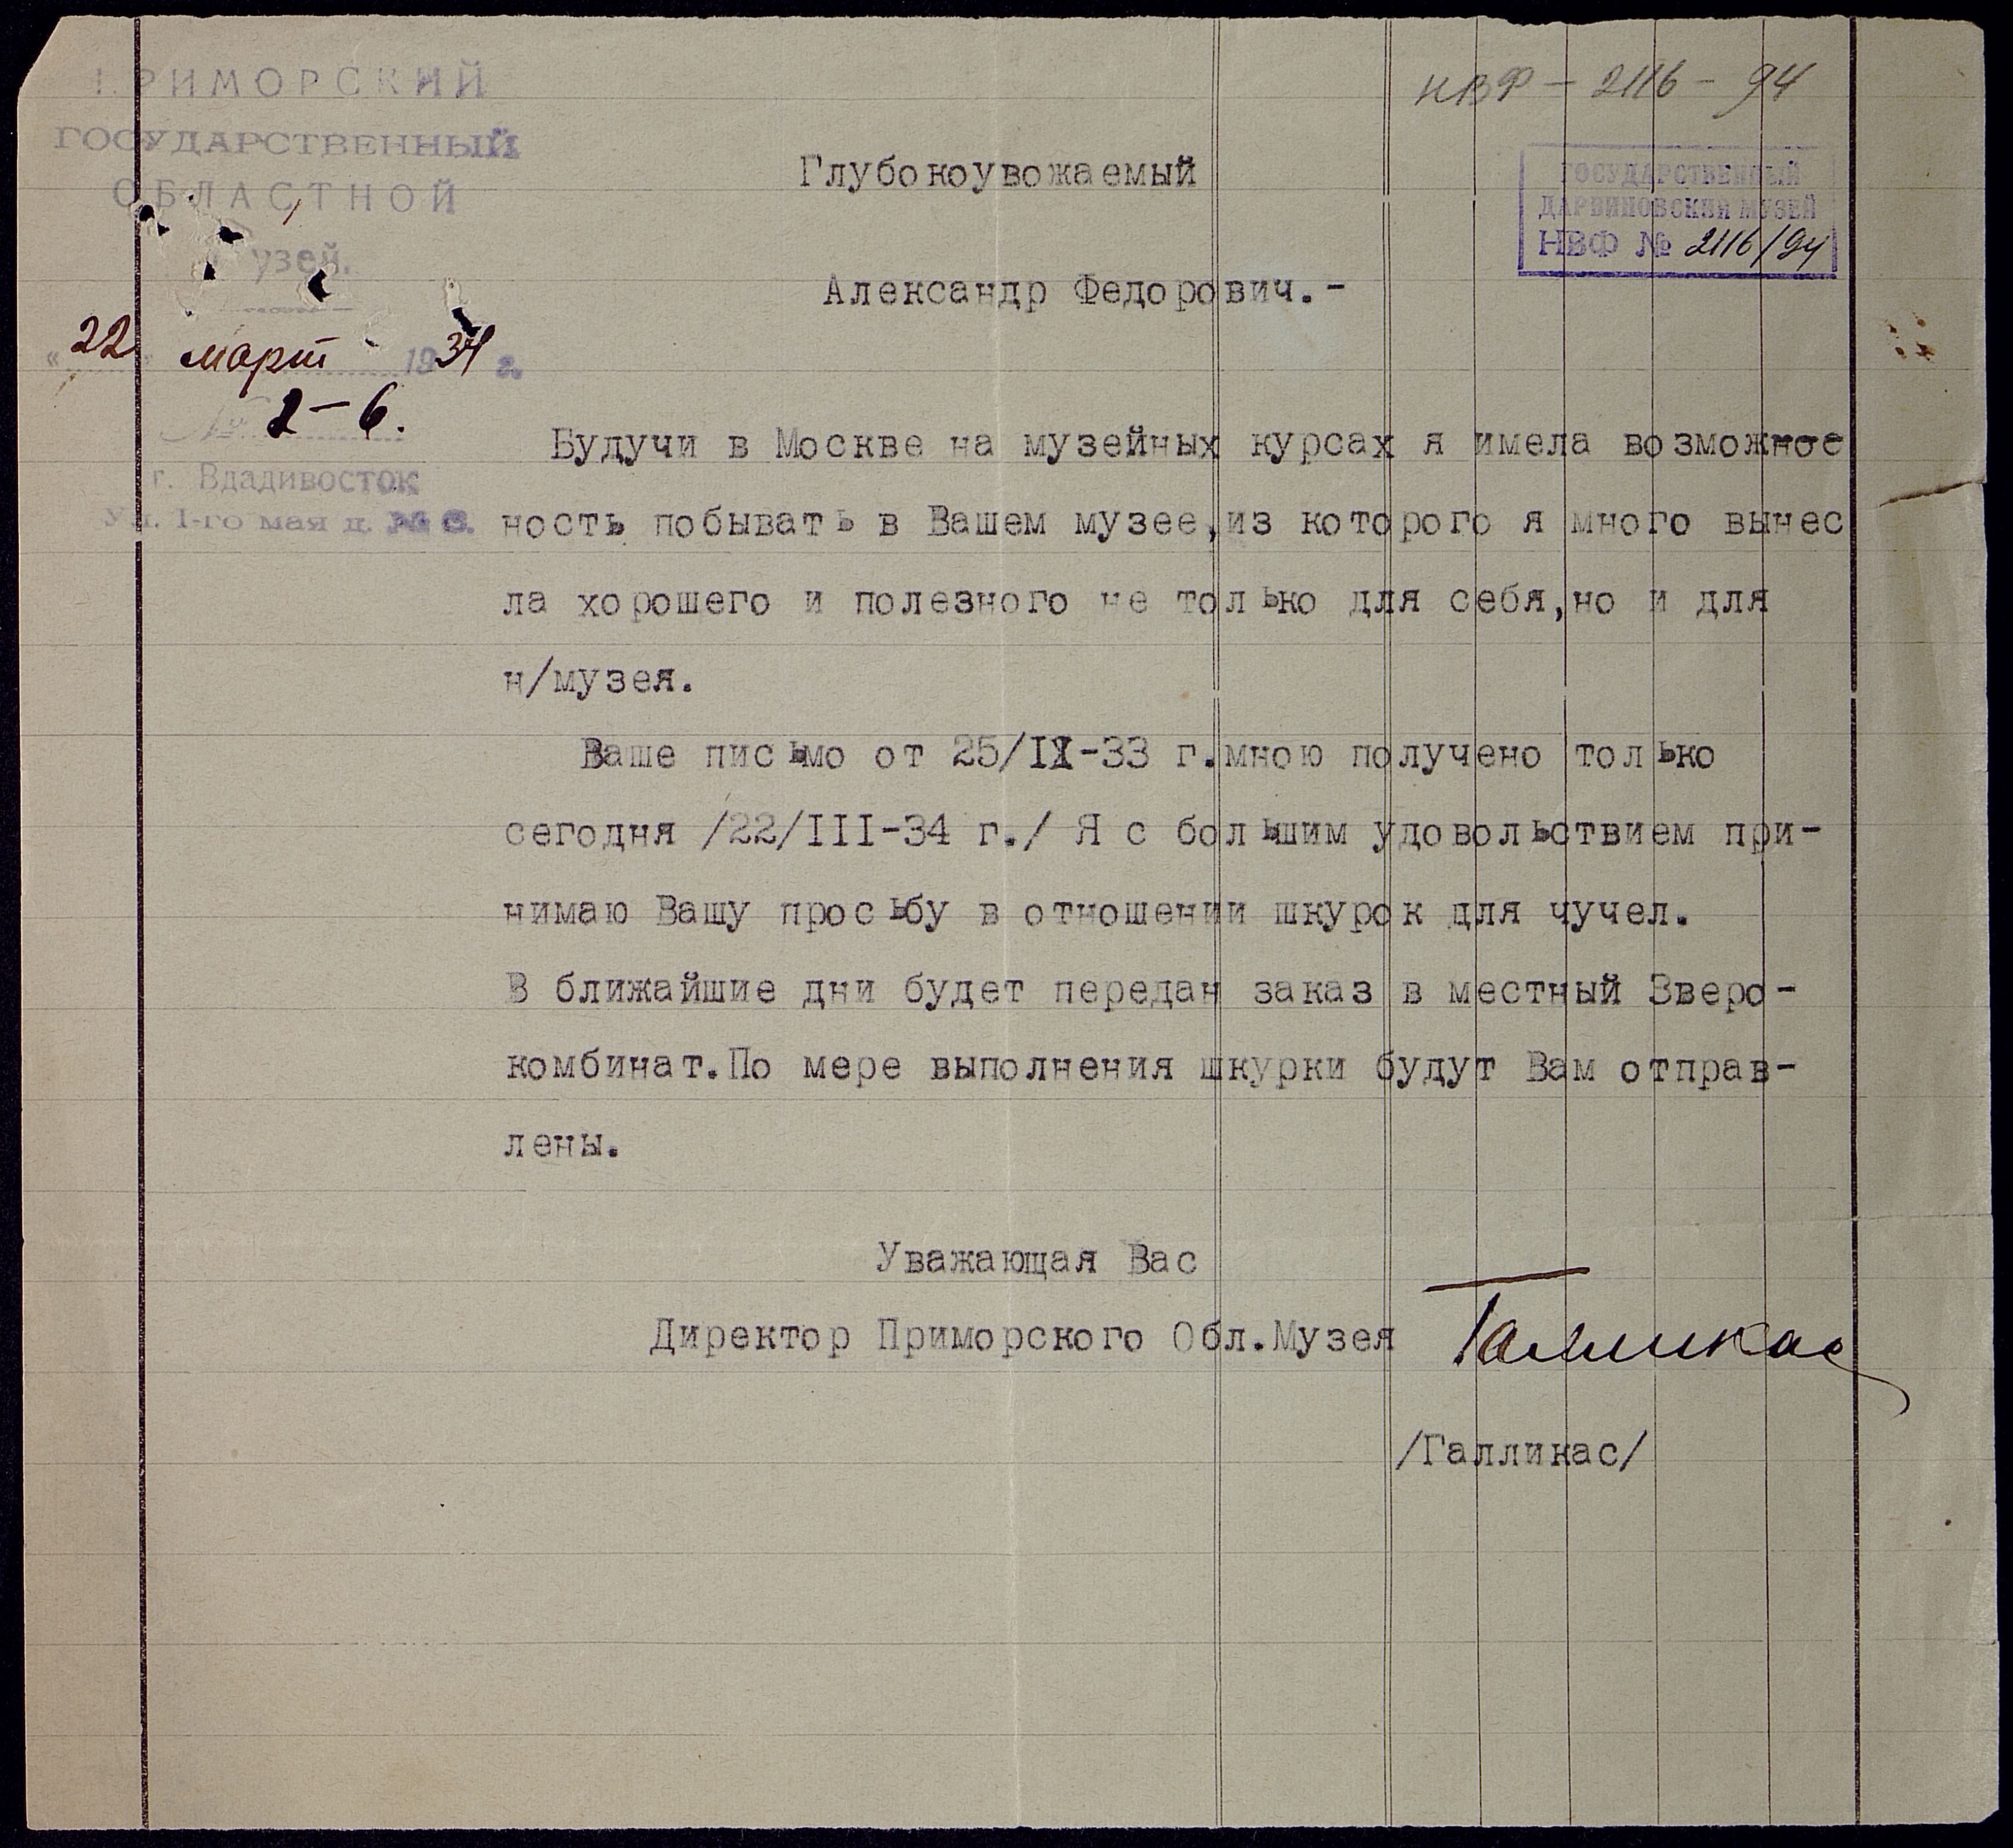 ПРИМОРСКИЙ
ГОСУДАРСТВЕННЫЙ
ОБЛАСТНОЙ
Музей.
"22" март 1934 г.
№ 2-6.
г. Владивосток
Ул. 1-го мая д. № 6.
НВФ - 2116 - 94
ГОСУДАРСТВЕННЫЙ
ДАРВИНОВСКИЙ МУЗЕЙ
НВФ № 2116/94
Глубокоувожаемый
Александр Федорович.-
Будучи в Москве на музейных курсах я имела возможное
ность побывать в Вашем музее,из которого я много вынес
ла хорошего и полезного не только для себя,но и для
н/музея.
Ваше письмо от 25/IX-33 г.мною получено только
сегодня /22/III-34 г./ Я с большим удовольствием при-
нимаю Вашу просьбу в отношении шкурок для чучел.
В ближайшие дни будет передан заказ в местный Зверо-
комбинат.По мере выполнения шкурки будут Вам отправ-
лены.
Уважающая Вас
Директор Приморского Обл.Музея Галликас
/Галликас/